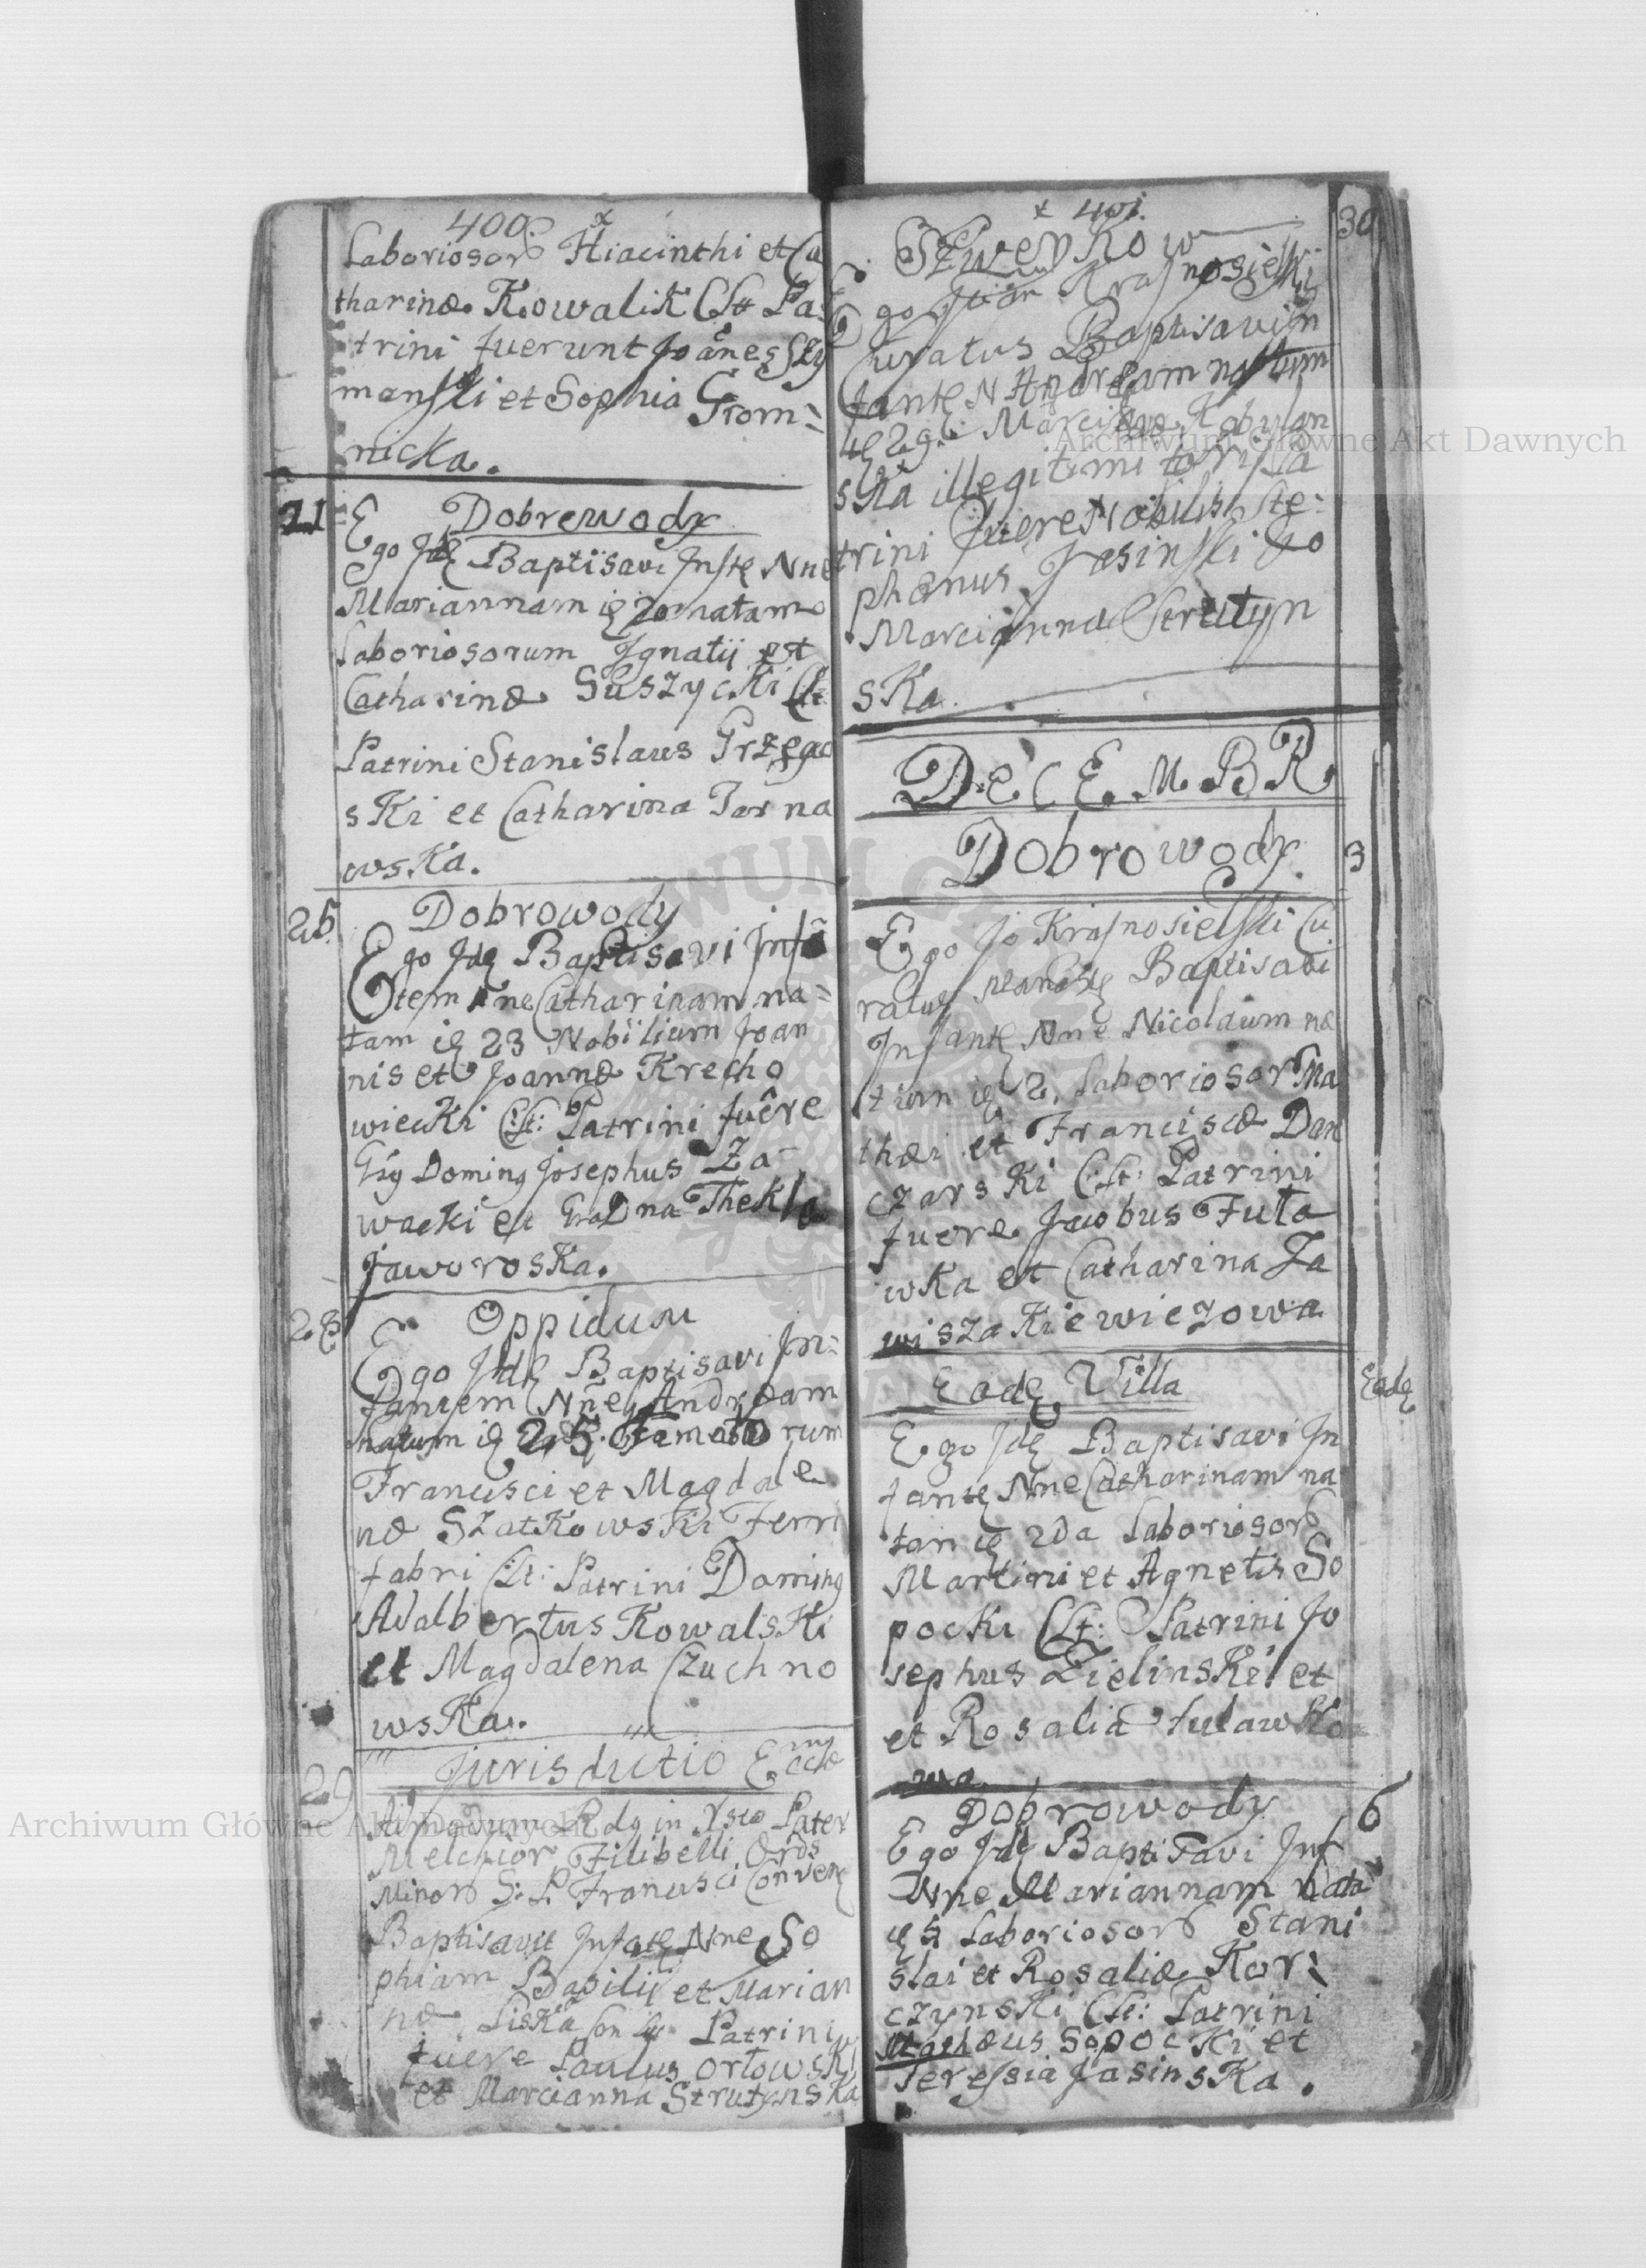 400
Laboriosorũ Hiacinthi et Ca
tharinæ Kowalik C: L: Pa-
trini fuerunt Joanes Szy
manski et Sophia Grom=
nicka.
21
Dobrewody
Ego Idẽ Baptisavi Inftẽ Nne
Mariannam iẽ 20 natam
Laboriosorum Ignatij et
Catharinæ Suszycki C: L:
Patrini Stanislaus Grzego
ski et Catharina Tarna
wska.
25
Dobrowody
Ego Idẽ Baptisavi Infã
tem Nne Catharinam na=
tam iẽ 23 Nobilium Joan
nis et Joannæ Krecho
wiecki C: L: Patrini fuêre
Josephus Za-
wacki et Thekla
Jaworoska.
28
Oppidum
Ego Idẽ Baptisavi In=
fantem Nne Andræam
natum iẽ 25. Famatorum
Francisci et Magdale
næ Szatkowski Ferri
fabri C: L: Patrini
Adalbertus Kowalski
et Magdalena Czuchno
wska.
29
Jurisdictio Eccle
Admodum Rdg in Xsto Pater
Melchior Filibelli Ords
Minorũ S: P. Francisci Convenẽ
Baptisavit Infatẽ Nne So
phiam Basilij et Marian
næ Liska Patrini
fuere Paulus Orlowski
et Marcianna Strutynska
x 401.
30
Szweykow
Ego Krasnosielski
Curatus Baptisavi In
fantẽ N Andream natum
iẽ 29. Kobylan
ska illegitimi tori Pa
trini fuere Nobilis Ste=
phanus Jasinski
Marcianna Strutyn
ska.
DECEMBR
Dobrowody.
3
Ego Jo Krasnosielski Cu
ratus Baptisavi
Infantẽ Nne Nicolaum na
tum iẽ 2. Laboriosorũ Ma
thæi et Franciscæ Dan
czarski C: L: Patrini
fuere Jacobus Fula
wka et Catharina Za
wiszakiewiczowa
Eadẽ Villa
Eadẽ
Ego Idẽ Baptisavi In
fantẽ Nne Catharinam na
tam iẽ 2da Laboriosorũ
Martini et Agnetis So
pocki C: L: Patrini Jo
sephus Zielinski et
et Rosalia Fulawko
wa
Dobrowody
6
Ego Idẽ Baptisavi Inf
Nne Mariannam nata
iẽ 5 Laboriosorũ Stani
slai et Rosaliæ Kor=
czynski C: L: Patrini
Mathæus Sopocki et
Teressia Jasinska.
Archiwum Główne Akt Dawnych
Archiwum Główne Akt Dawnych